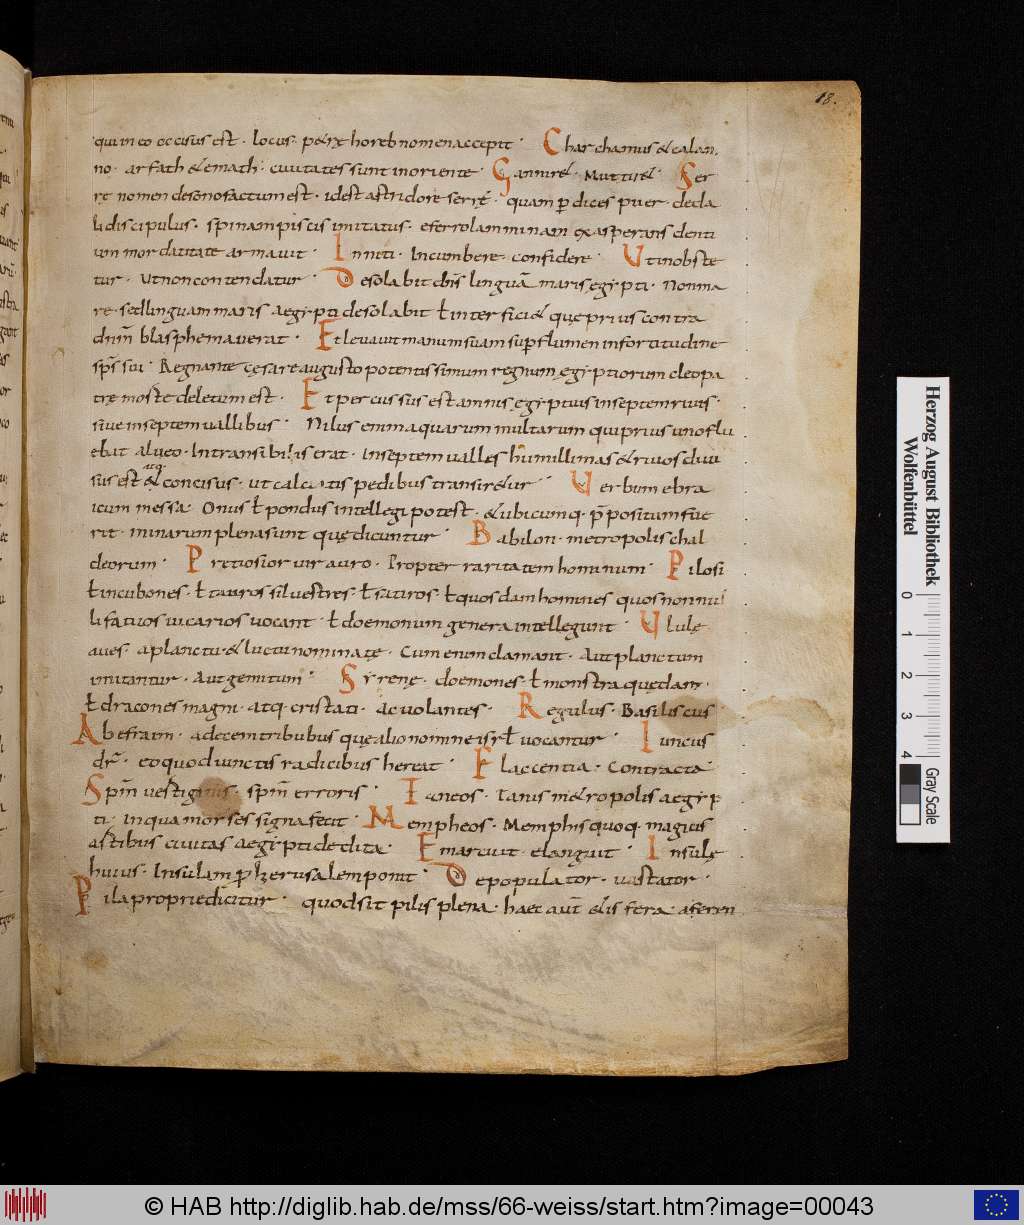 18.
qui in eo occisus est . locus . petrȩ horeb nomen accepit . Charchamus & calan,
no . arfath & emath . civitates sunt in oriente . Gannir& . Muttir& . Ser
rȩ nomen de sono factum est . id est a stridore serrȩ . quam p̄dices puer . deda
li discipulus . spinam piscis imitatus . e ferro laminam & asperans denti
um mordacitate armavit . Inniti . Incumbere . confidere . Ut in obste
tur . Ut non contendatur . Desolabit dn̄s linguā maris egypti . Non ma
re . sed linguam maris aegypti desolabit ł interfici& quȩ prius contra
dnm̄ blasphemaverat . Et levavit manum suam sup flumen in fortitudine
sps̄ sui . Regnante cȩsare augusto potentissimum regnum ȩgyptiorum cleopa
trȩ morte deletum est . Et percussus est amnis ȩgyptius in septem rivis .
sive in septem vallibus . Nilus em magquarum multarum qui prius uno flu
ebat alveo . Intransibilis erat . in septem valles humillimas & rivos divi
sus est & concisus . ut calciatis pedibus transir&ur . Verbum ebra
icum messa . Onus ł pondus intellegi potest . & ubicumq . p̄positum fue
rit . minarum plena sunt quȩ dicuntur . Babilon . metropolis chal
deorum . Pretiosior vir auro . Propter raritatem hominum . Pilosi
ł incubones . ł tauros silvestres . ł satiros . ł quosdam homines quos nonnul
li fatuos vicarios vocant . ł doemonum genera intellegunt . Ululȩ
aves . a planctu & luctu nominatȩ . Cum enim clamant . Aut planctum
imitantur . Aut gemitum . Syrenȩ . doemones . ł monstra quȩdam .
ł dracones magni . atq . cristati . ac volantes . Regulus . Basiliscus
Ab efraim . a decem tribubus quȩ alio nomine isrł vocantur . Iuncus
dr̄ . eo quod iunctis radicibus hereat . Flaccentia . Contracta
Spm̄ vestiginis . spm̄ erroris . Taneos . Tanis m&ropolis aegyp
ti . in qua moyses signa fecit . Mempheos . Memphis quoq . magicis
artibus civitas aegypti dedita . Emarcuit . elanguit . Insulȩ
huius . Insulam p hierusalem ponit . Depopulator . vastator .
Pila proprie dicitur . quod sit pilis plena . haec aut̄ & is fera aferen
Herzog August Bibliothek
Wolfenbüttel
0 1 2 3 4
Gray Scale
© HAB http://diglib.hab.de/mss/66-weiss/start.htm?image=00043